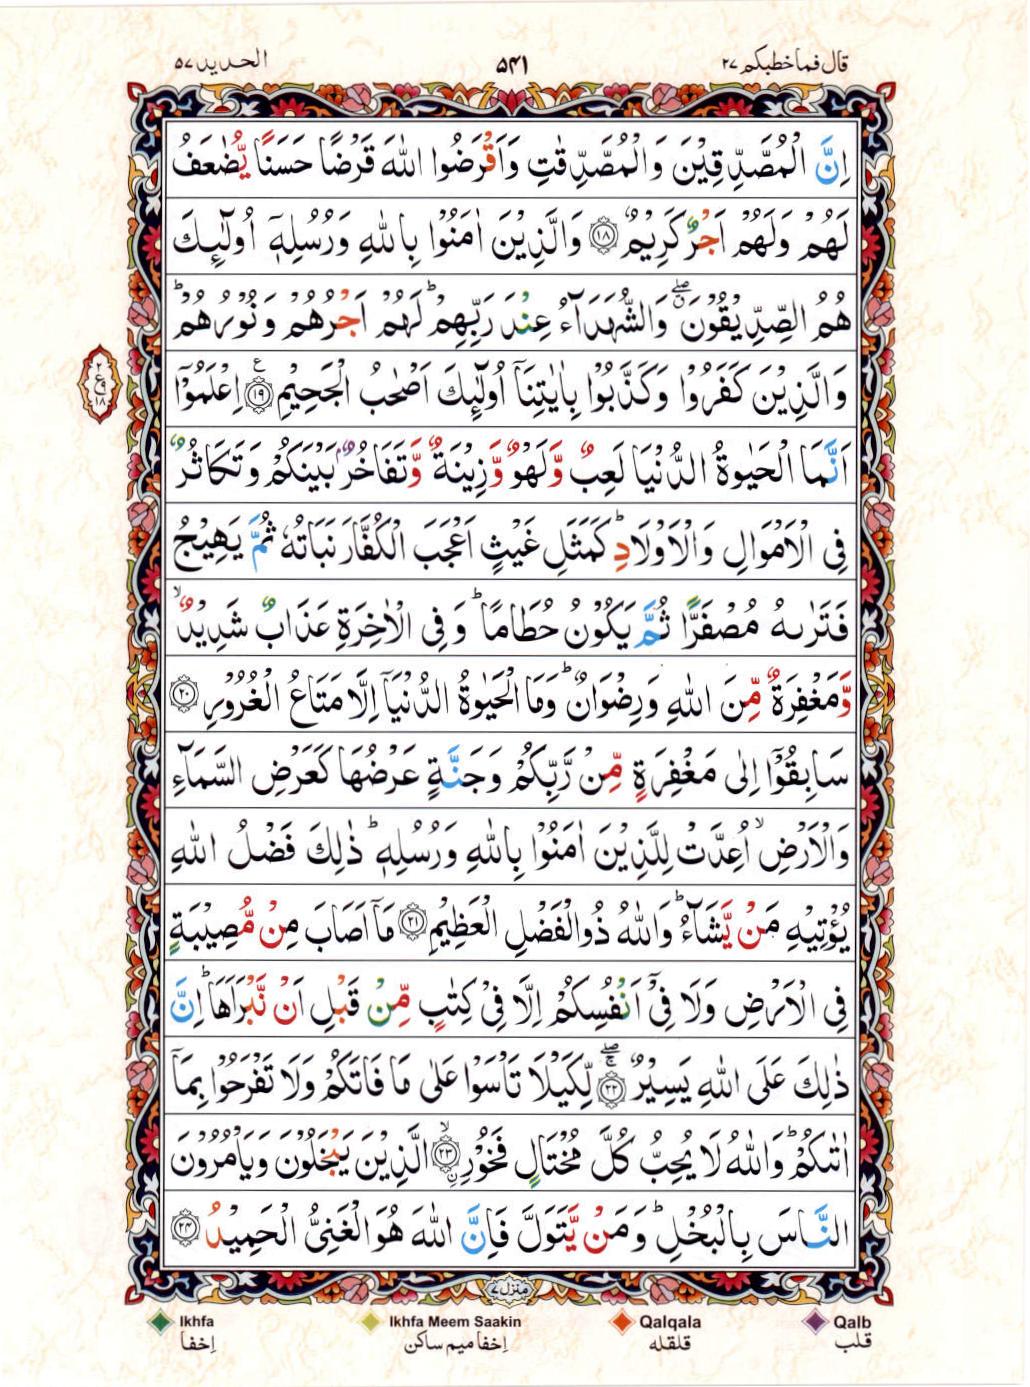 قال فما خطبكم ٢٧ ۵۴۱ الحديد ٥٧
اِنَّ الْمُصَّدِّقِيْنَ وَالْمُصَّدِّقٰتِ وَاَقْرَضُوا اللّٰهَ قَرْضًا حَسَنًا يُّضٰعَفُ
لَهُمْ وَلَهُمْ اَجْرٌ كَرِيْمٌ ۝۱۸ وَالَّذِيْنَ اٰمَنُوْا بِاللّٰهِ وَرُسُلِهٖٓ اُولٰٓئِكَ
هُمُ الصِّدِّيْقُوْنَ ۖۗ وَالشُّهَدَآءُ عِنْدَ رَبِّهِمْ ؕ لَهُمْ اَجْرُهُمْ وَنُوْرُهُمْ ؕ
وَالَّذِيْنَ كَفَرُوْا وَكَذَّبُوْا بِاٰيٰتِنَآ اُولٰٓئِكَ اَصْحٰبُ الْجَحِيْمِ ۝۱۹ ع اِعْلَمُوْٓا
۲ ع ۱۸
اَنَّمَا الْحَيٰوةُ الدُّنْيَا لَعِبٌ وَّلَهْوٌ وَّزِيْنَةٌ وَّتَفَاخُرٌۢ بَيْنَكُمْ وَتَكَاثُرٌ
فِى الْاَمْوَالِ وَالْاَوْلَادِ ؕ كَمَثَلِ غَيْثٍ اَعْجَبَ الْكُفَّارَ نَبَاتُهٗ ثُمَّ يَهِيْجُ
فَتَرٰىهُ مُصْفَرًّا ثُمَّ يَكُوْنُ حُطَامًا ؕ وَفِى الْاٰخِرَةِ عَذَابٌ شَدِيْدٌ ۙ
وَّمَغْفِرَةٌ مِّنَ اللّٰهِ وَرِضْوَانٌ ؕ وَمَا الْحَيٰوةُ الدُّنْيَآ اِلَّا مَتَاعُ الْغُرُوْرِ ۝۲۰
سَابِقُوْٓا اِلٰى مَغْفِرَةٍ مِّنْ رَّبِّكُمْ وَجَنَّةٍ عَرْضُهَا كَعَرْضِ السَّمَآءِ
وَالْاَرْضِ ۙ اُعِدَّتْ لِلَّذِيْنَ اٰمَنُوْا بِاللّٰهِ وَرُسُلِهٖ ؕ ذٰلِكَ فَضْلُ اللّٰهِ
يُؤْتِيْهِ مَنْ يَّشَآءُ ؕ وَاللّٰهُ ذُو الْفَضْلِ الْعَظِيْمِ ۝۲۱ مَآ اَصَابَ مِنْ مُّصِيْبَةٍ
فِى الْاَرْضِ وَلَا فِىْٓ اَنْفُسِكُمْ اِلَّا فِىْ كِتٰبٍ مِّنْ قَبْلِ اَنْ نَّبْرَاَهَا ؕ اِنَّ
ذٰلِكَ عَلَى اللّٰهِ يَسِيْرٌ ۝۲۲ ۖۚ لِّكَيْلَا تَاْسَوْا عَلٰى مَا فَاتَكُمْ وَلَا تَفْرَحُوْا بِمَآ
اٰتٰىكُمْ ؕ وَاللّٰهُ لَا يُحِبُّ كُلَّ مُخْتَالٍ فَخُوْرِ ۝۲۳ ۙ ࣙالَّذِيْنَ يَبْخَلُوْنَ وَيَاْمُرُوْنَ
النَّاسَ بِالْبُخْلِ ؕ وَمَنْ يَّتَوَلَّ فَاِنَّ اللّٰهَ هُوَ الْغَنِىُّ الْحَمِيْدُ ۝۲۴
منزل ۷
Ikhfa Ikhfa Meem Saakin Qalqala Qalb
اِخفا اِخفا ميم ساكن قلقله قلب